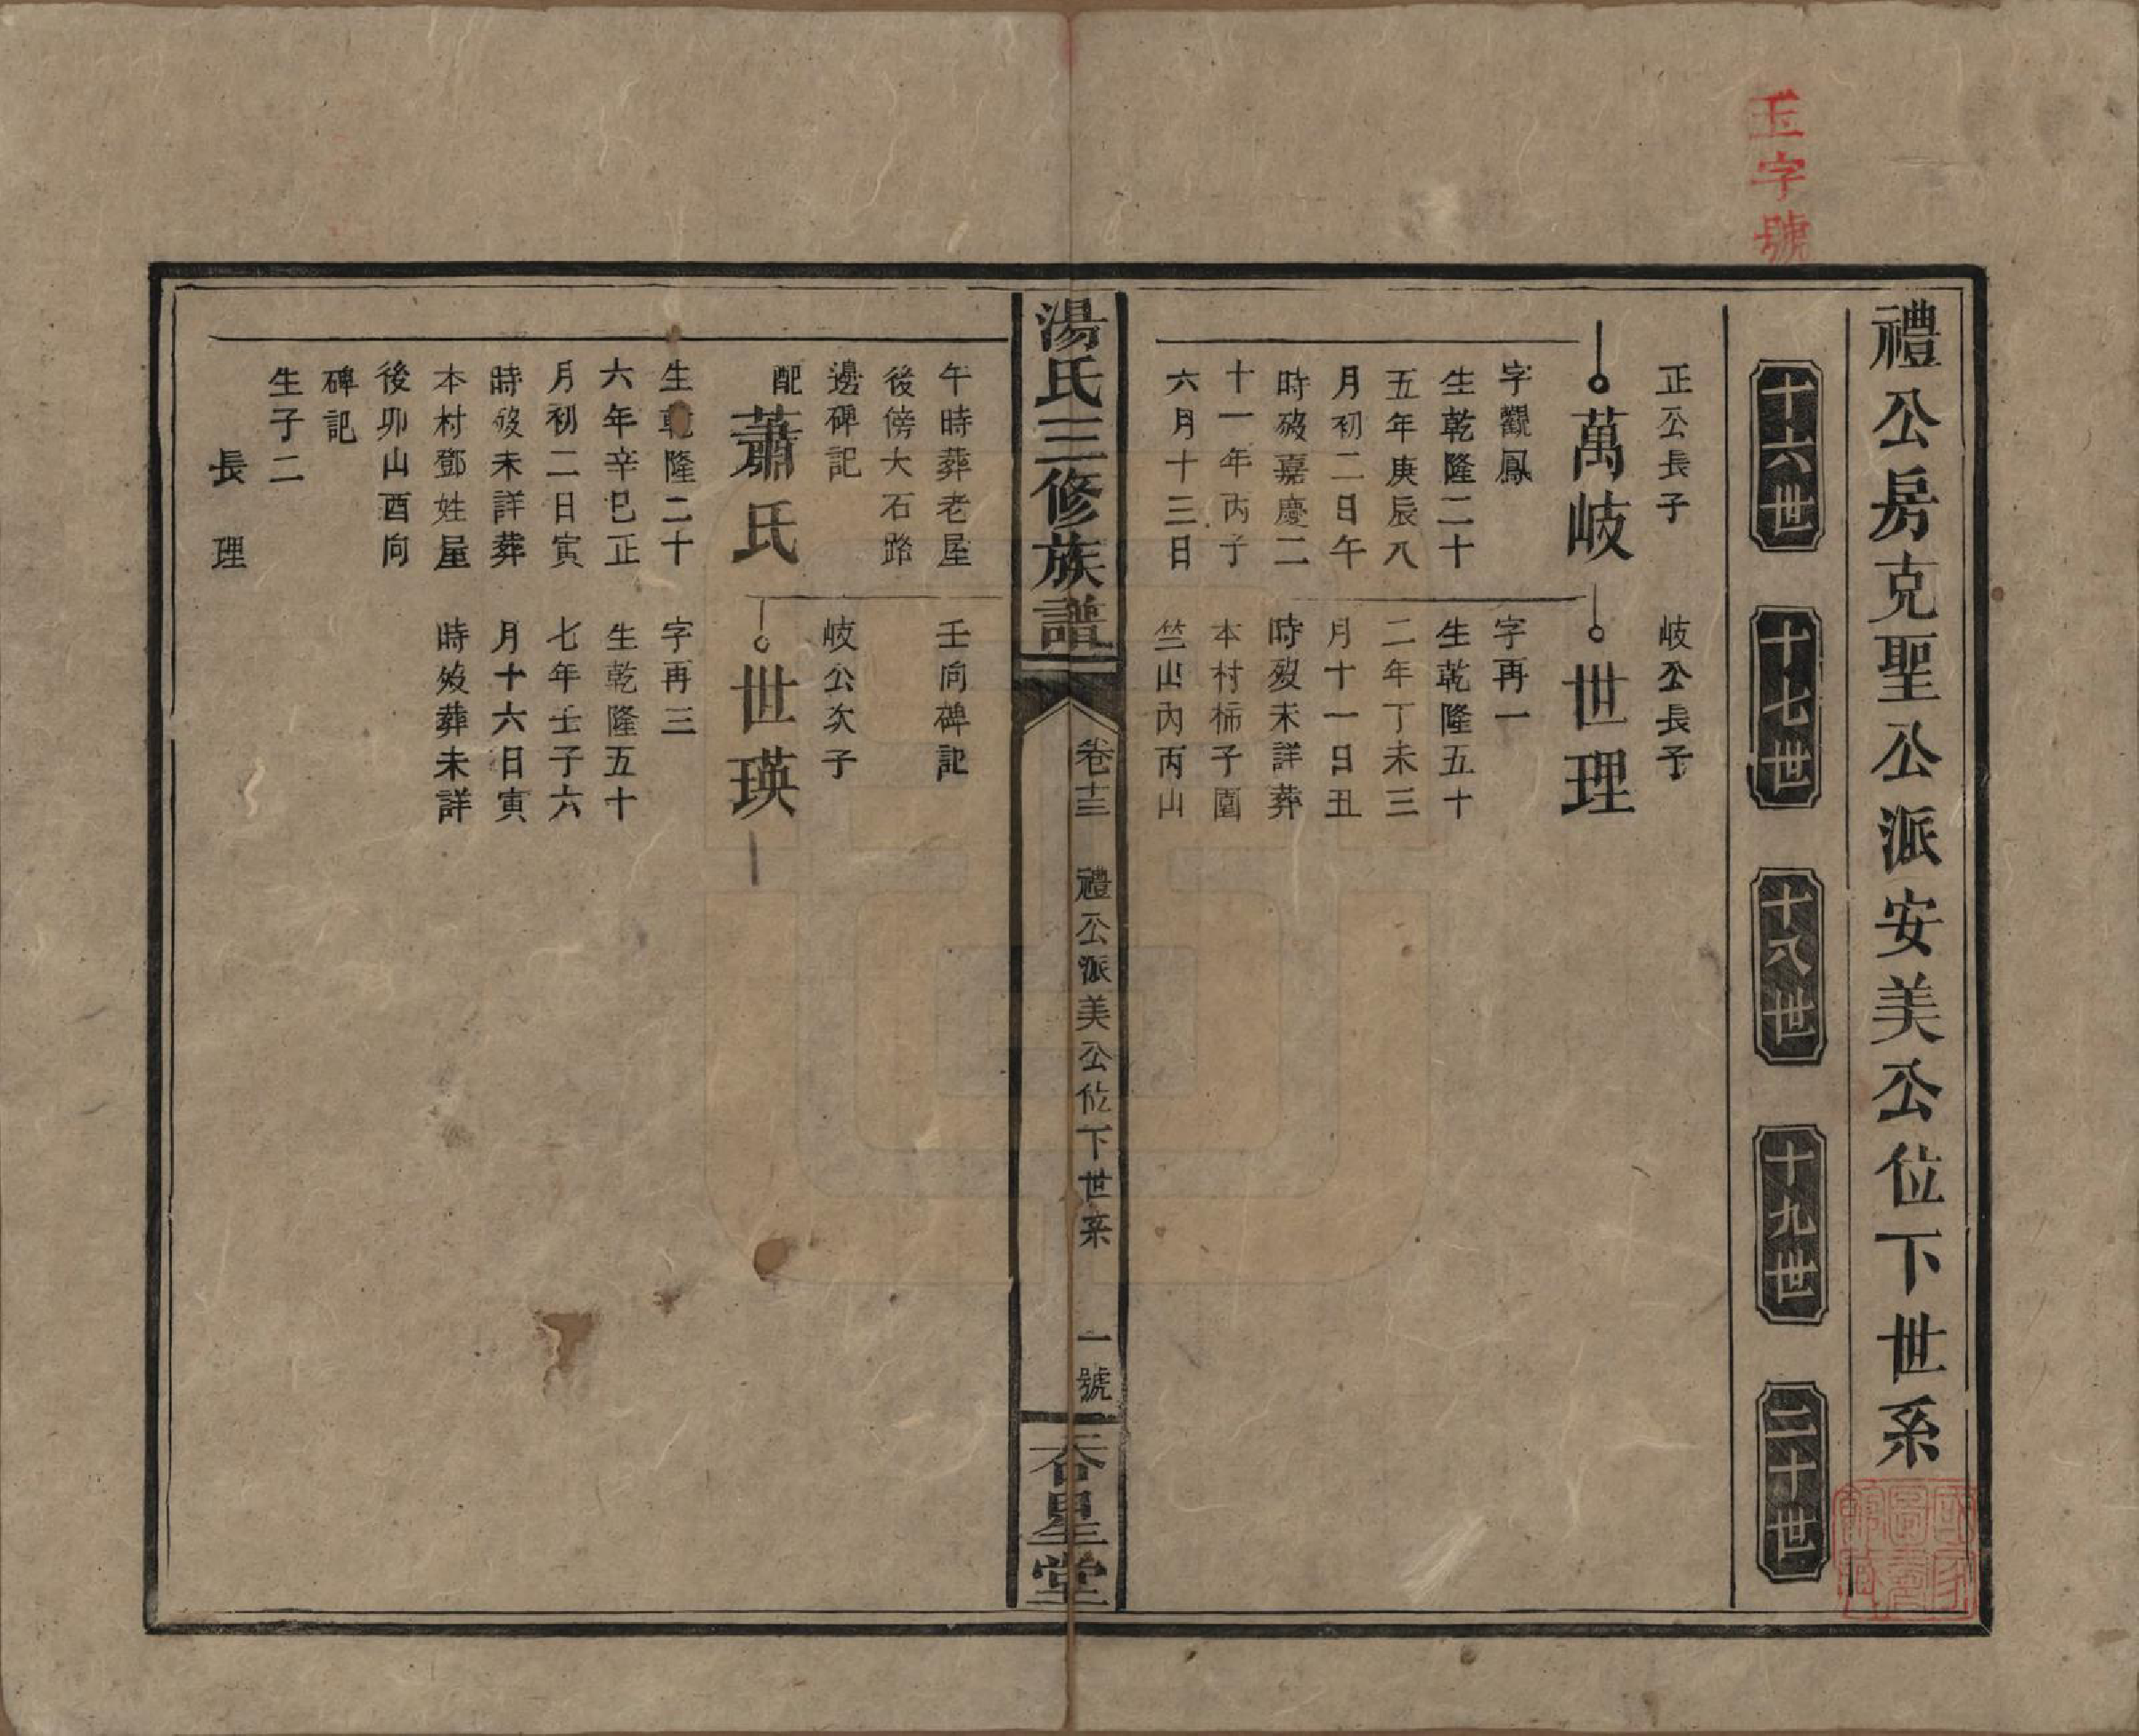 玉字號
禮公房克聖公派安美公位下世系
十六世
十七世
十八世
十九世
二十世
正公長子
萬岐
字觀鳳
生乾隆二十
五年庚辰八
月初二日午
時歿嘉慶二
十一年丙子
六月十三日
岐公長子
世理
字再一
生乾隆五十
二年丁未三
月十一日丑
時歿未詳葬
本村柿子園
竺山內丙山
湯氏三修族譜
卷十三
禮公派美公位下世系
一號
星堂
午時葬老屋
後傍大石路
邊碑記
配蕭氏
生乾隆二十
六年辛巳正
月初二日寅
時歿未詳葬
本村鄧姓屋
後卯山酉向
碑記
生子二
長理
壬向碑記
岐公次子
世瑛
字再三
生乾隆五十
七年壬子六
月十六日寅
時歿葬未詳